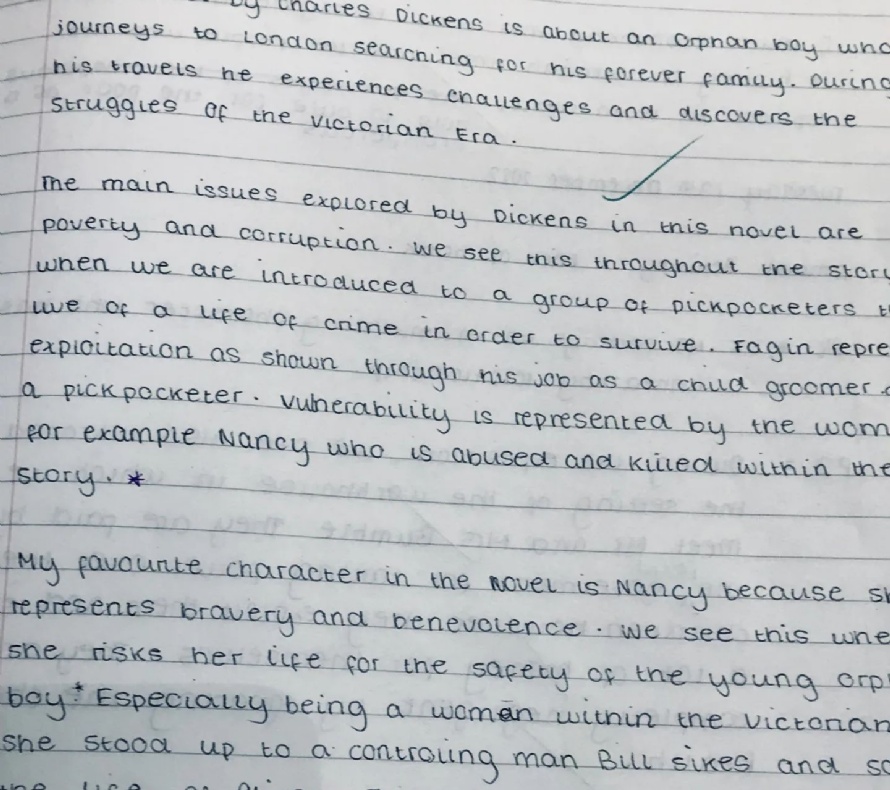 by Charles Dickens is about an orphan boy who
journeys to London searching for his forever family. During
his travels he experiences challenges and discovers the
struggles of the Victorian Era.
The main issues explored by Dickens in this novel are
poverty and corruption. We see this throughout the story
when we are introduced to a group of pickpocketers
live of a life of crime in order to survive. Fagin repre
exploitation as shown through his job as a child groomer
a pickpocketer. Vulnerability is represented by the wom
for example Nancy who is abused and killed within the
story. *
My favourite character in the novel is Nancy because sh
represents bravery and benevolence. We see this whe
she risks her life for the safety of the young orp
boy* Especially being a woman within the Victorian
she stood up to a controling man Bill Sikes and sa